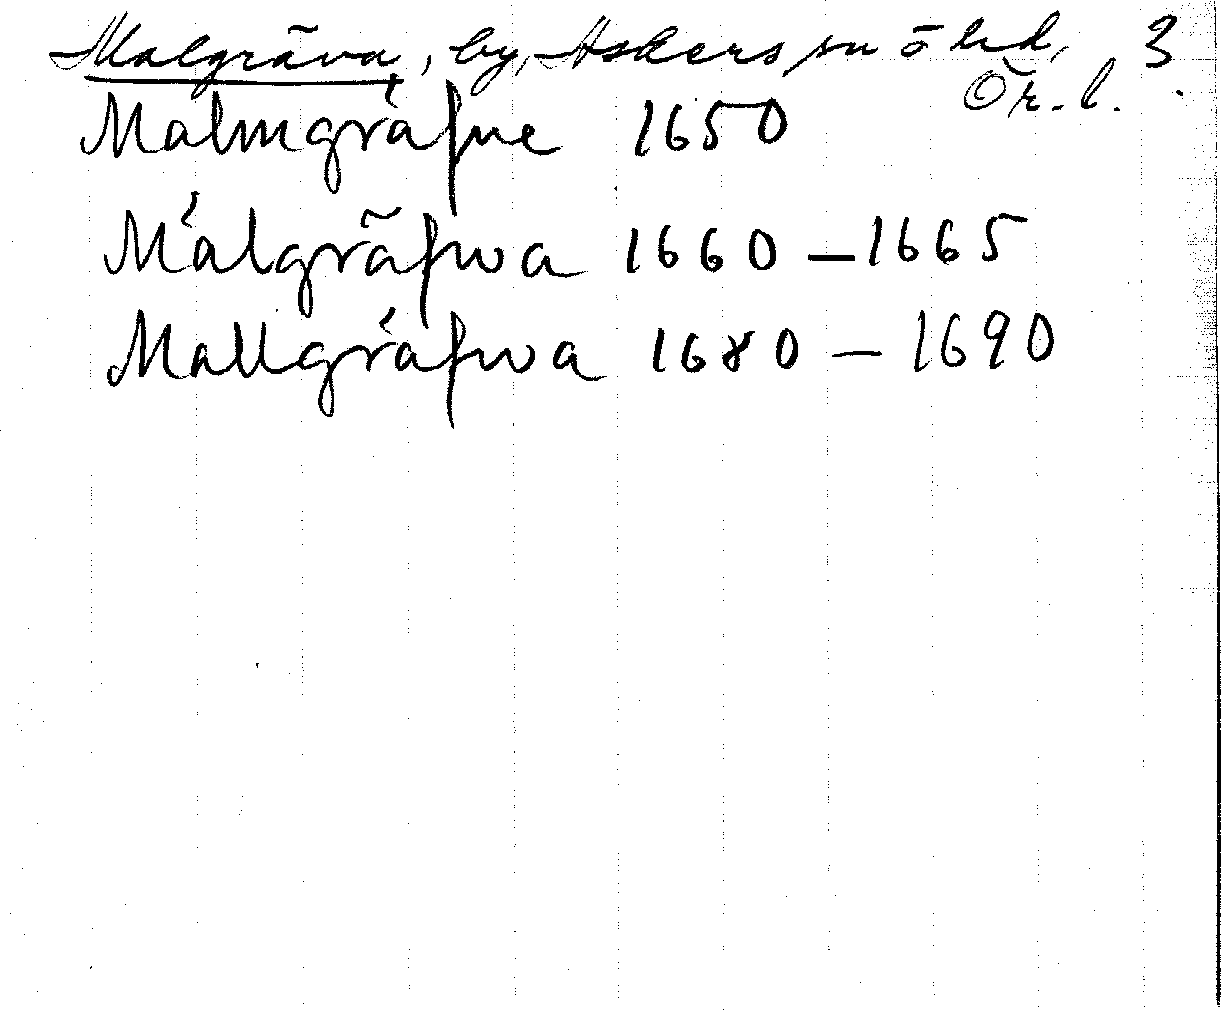 Malgräva, by, Askers sn ö hd, 3
Ör. l.
Malmgráfne 1650
Málgräfwa 1660 – 1665
Mallgráfwa 1680 – 1690